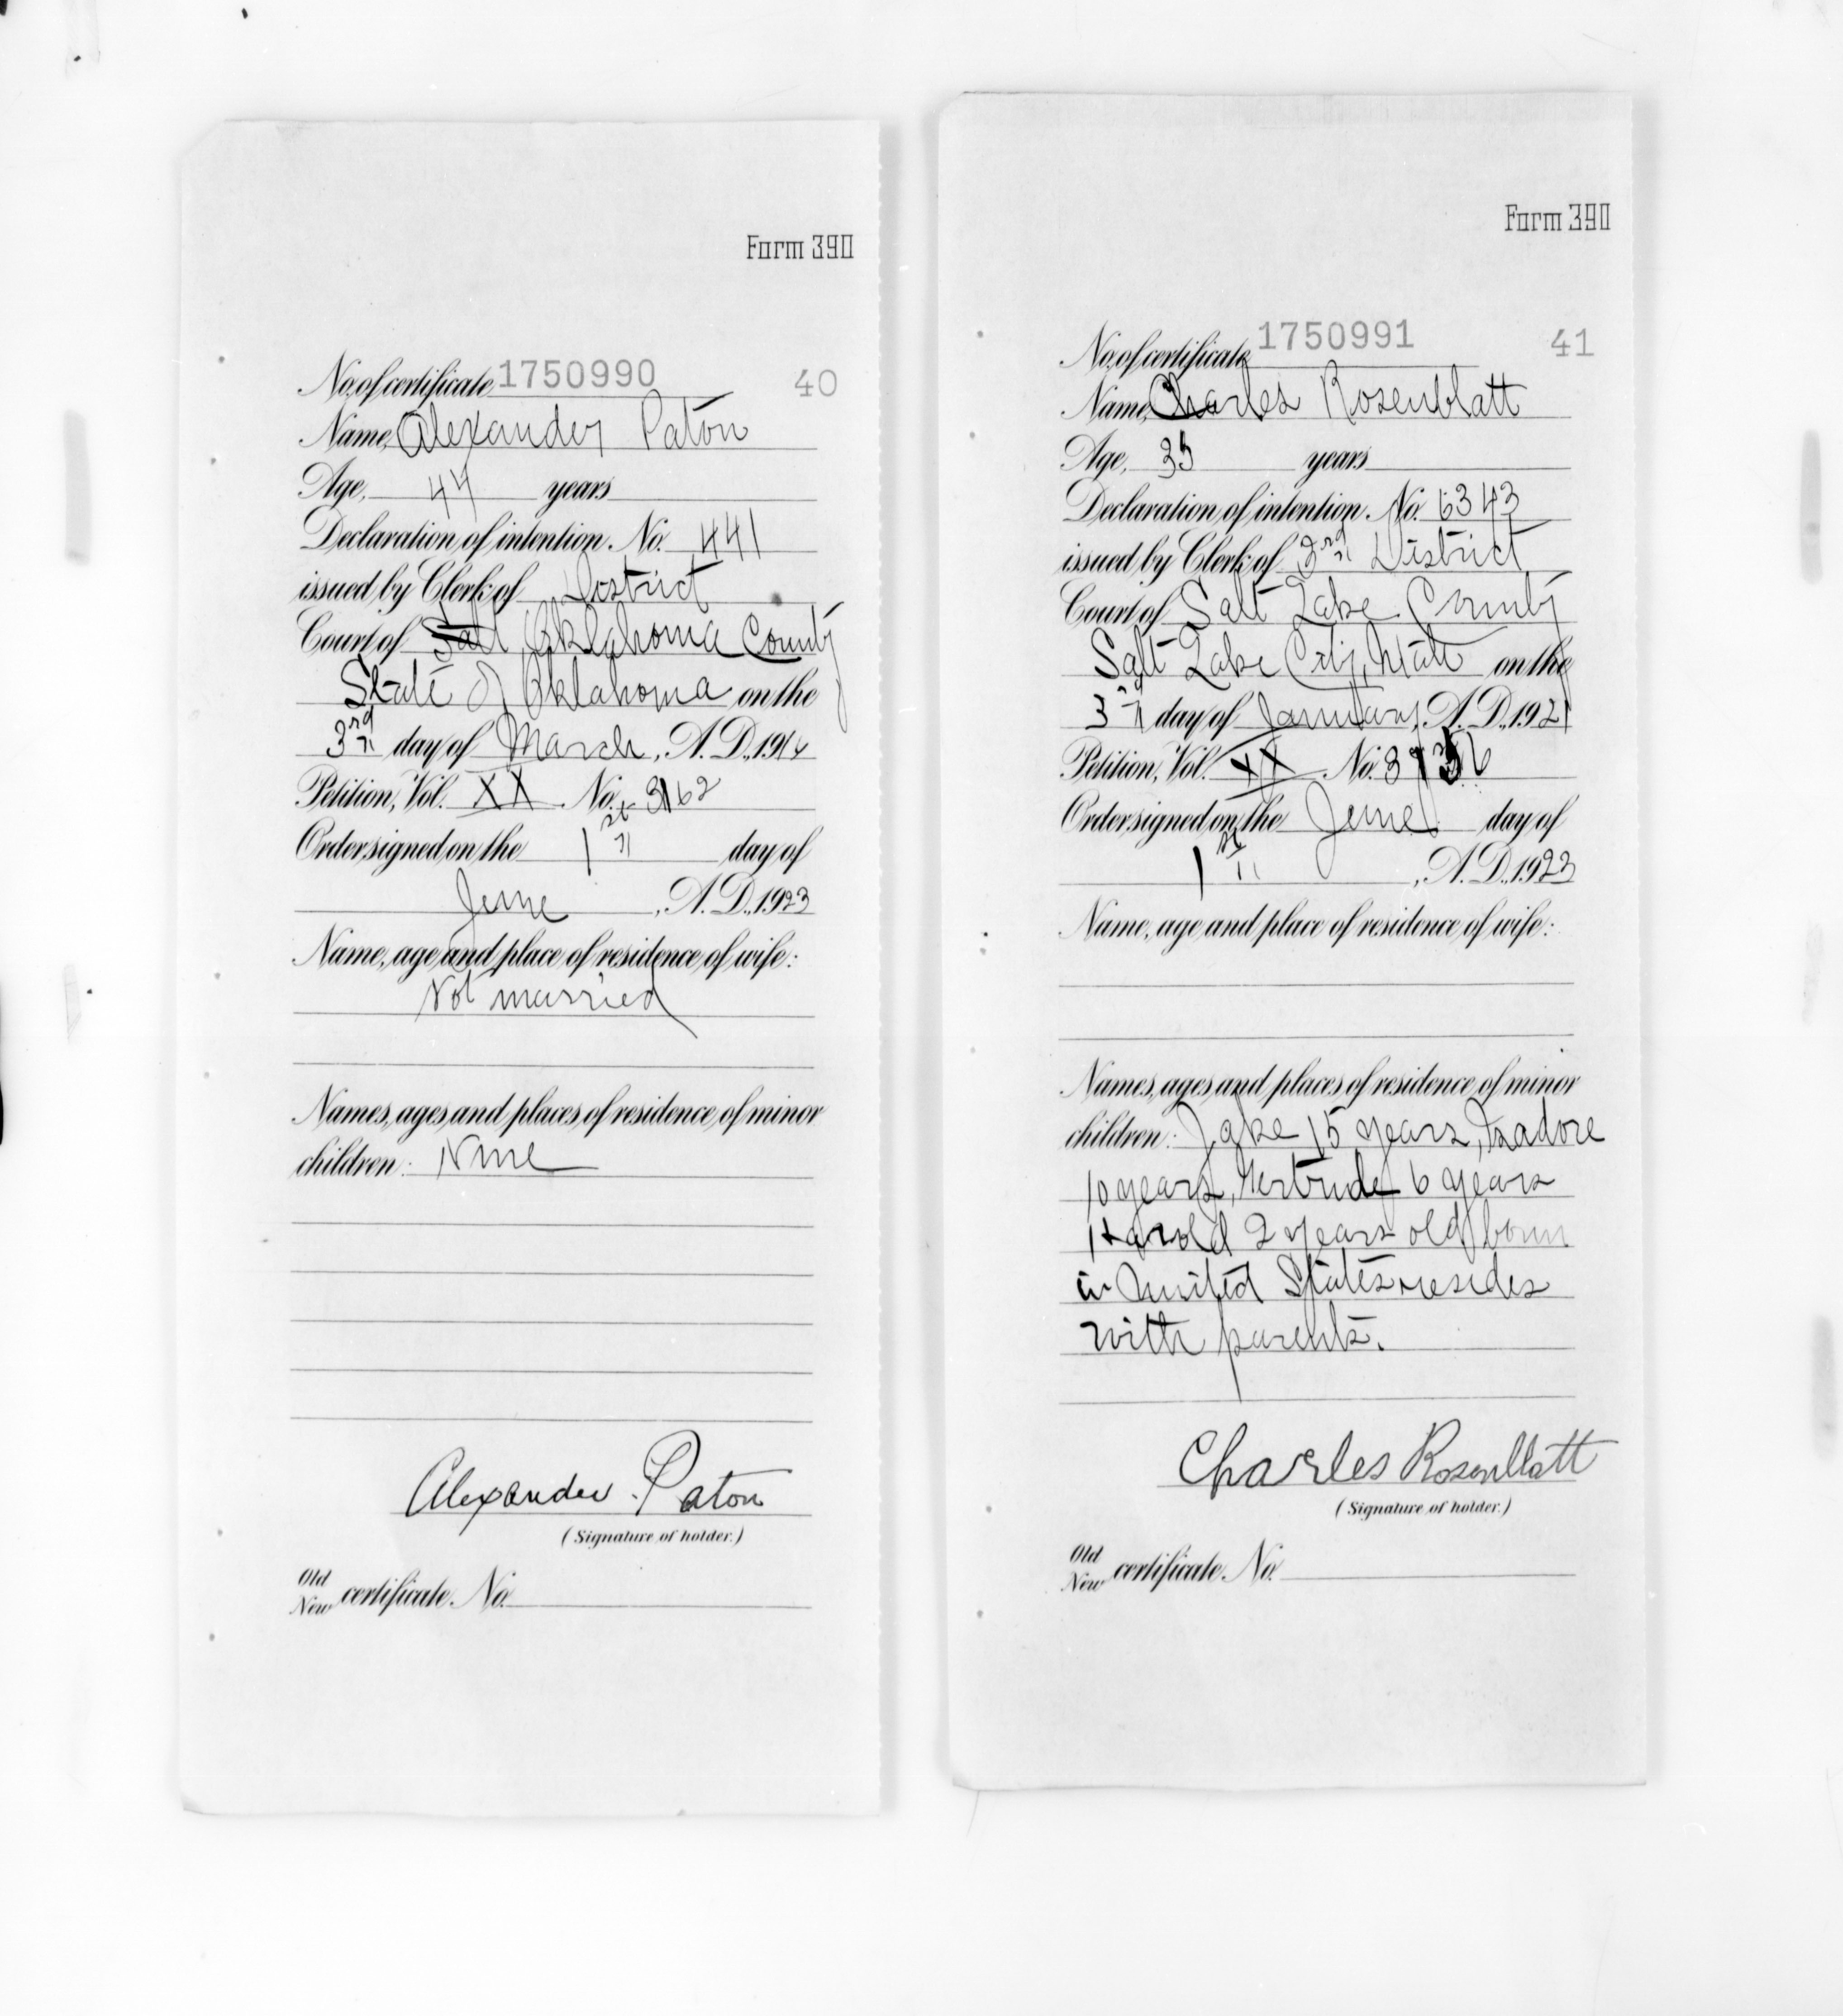 Form 390
No. of certificate, 1750990 40
Name, Alexander Paton
Age, 44 years
Declaration of intention No. 441
issued by Clerk of District
Court of Salt, Oklahoma County
State of Oklahoma on the
3rd day of March, A.D., 1914
Petition, Vol. XX No. 3162
Order signed on the 1st day of
June, A.D., 1923
Name, age and place of residence of wife:
Not married
Names, ages and places of residence of minor
children: None
Alexander Paton
(Signature of holder.)
Old
New certificate No.
Form 390
No. of certificate, 1750991 41
Name, Charles Rosenblatt
Age, 35 years
Declaration of intention No. 6343
issued by Clerk of 3rd District
Court of Salt Lake County
Salt Lake City, Utah on the
3rd day of January, A.D., 1921
Petition, Vol. XX No.
Order signed on the June day of
1st, A.D., 1923
Name, age and place of residence of wife:
Names, ages and places of residence of minor
children: Jake 15 years, Isadore
10 years, Gertrude 6 years
Harold 2 years old born
in United States resides
with parents.
Charles Rosenblatt
(Signature of holder.)
Old
New certificate No.